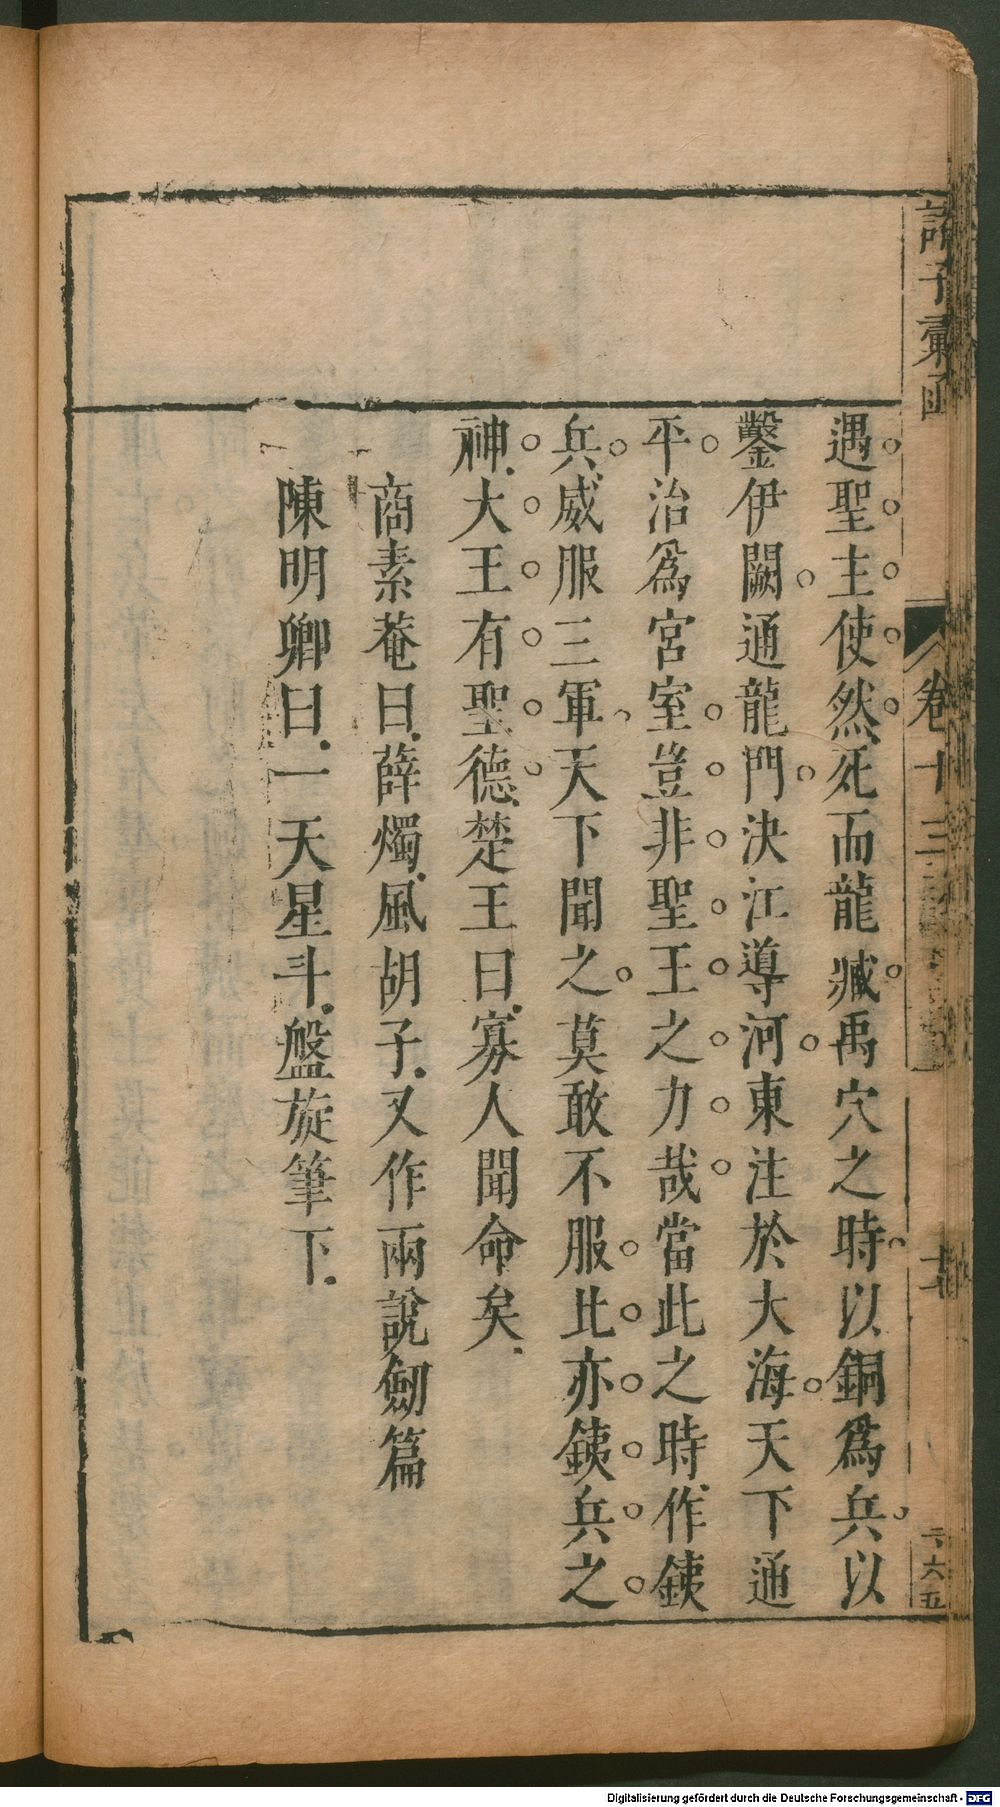 諸子彙函
卷十三
遇聖主使然死而龍臧禹穴之時以銅爲兵以
鑿伊闕通龍門決江導河東注於大海天下通
平治爲宮室豈非聖王之力哉當此之時作銕
兵威服三軍天下聞之莫敢不服此亦銕兵之
神大王有聖德楚王曰寡人聞命矣
商素菴曰薛燭風胡子又作兩說劒篇
陳明卿曰一天星斗盤旋筆下
Digitalisierung gefördert durch die Deutsche Forschungsgemeinschaft - DFG